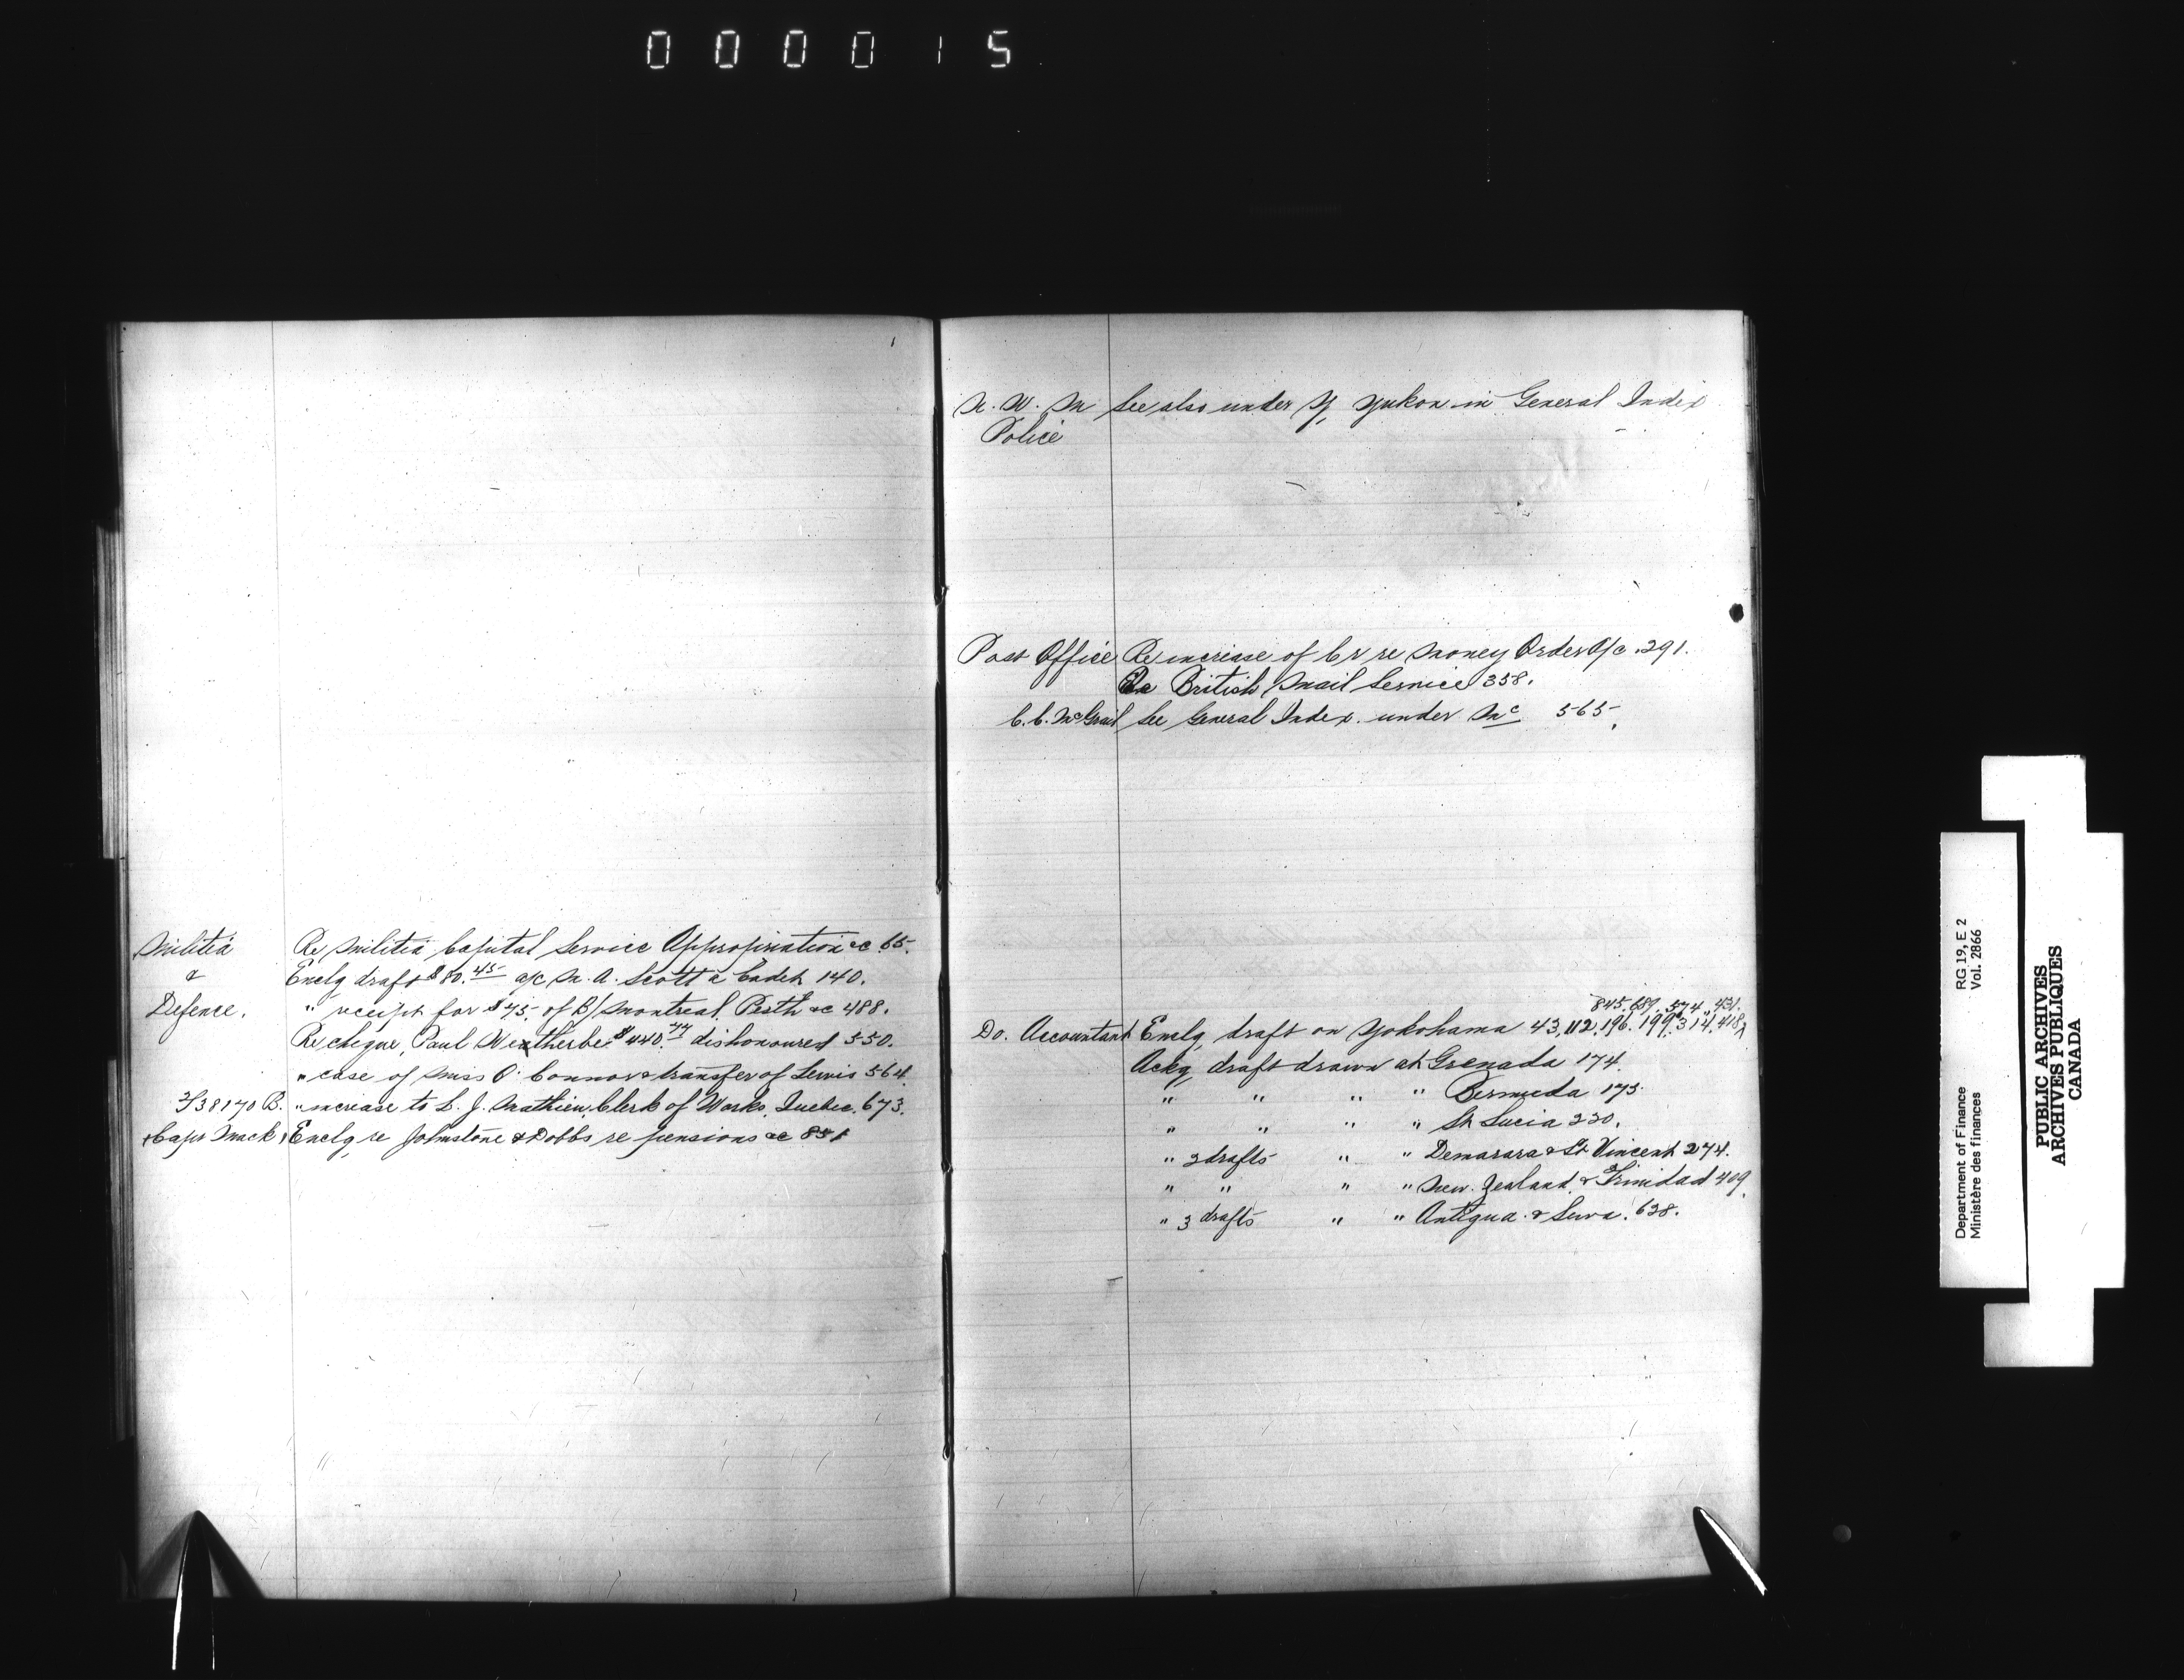 000015
Militia Re Militia Capital Service Appropriation &c 65.
& Enclg draft $80.45 a/c M. A. Scott a Cadet 140.
Defence. " receipt for $45. of B/Montreal, Perth &c 488.
Re cheque, Paul Weatherbe $440.77 dishonoured 550.
" case of Miss O'Connor & transfer of Lewis 564.
38170 B. " increase to L. J. Mathieu, Clerk of Works, Quebec. 673.
Enclg re Johnstone & Dobbs re pensions &c 851
N. W. M See also under Y, Yukon in General Index
Police
Post Office Re increase of Cr re Money Order A/c 291.
Re British Mail Service 358.
C. C. McGrail See General Index under Mc 565.
845. 689. 574. 431.
Do. Accountant Enclg draft on Yokohama 43, 112, 196. 199. 314. 418
Ackg draft drawn at Grenada 174.
" " " " Bermuda 175.
" " " " St Lucia 220.
" 2 drafts " " Demarara & St Vincent 274.
" " " " New Zealand & Trinidad 409.
" 3 drafts " " Antigua & Suva. 628.
Department of Finance RG 19, E 2
Ministère des finances Vol. 2866
PUBLIC ARCHIVES
ARCHIVES PUBLIQUES
CANADA